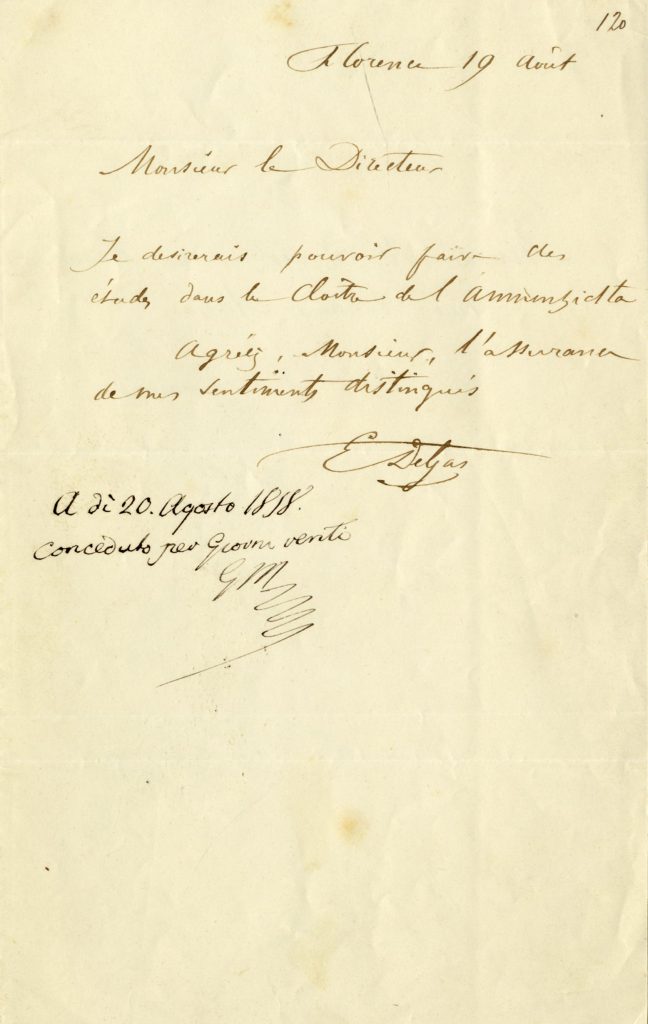 120
Florence 19 Août
Monsieur le Directeur
Je desirerais pouvoir faire des
études dans le Cloître de l'Annunziata
Agréez, Monsieur, l'assurance
de mes sentiments distingués
E DeGas
A dì 20. Agosto 1858.
Conceduto per Giorni venti
GM